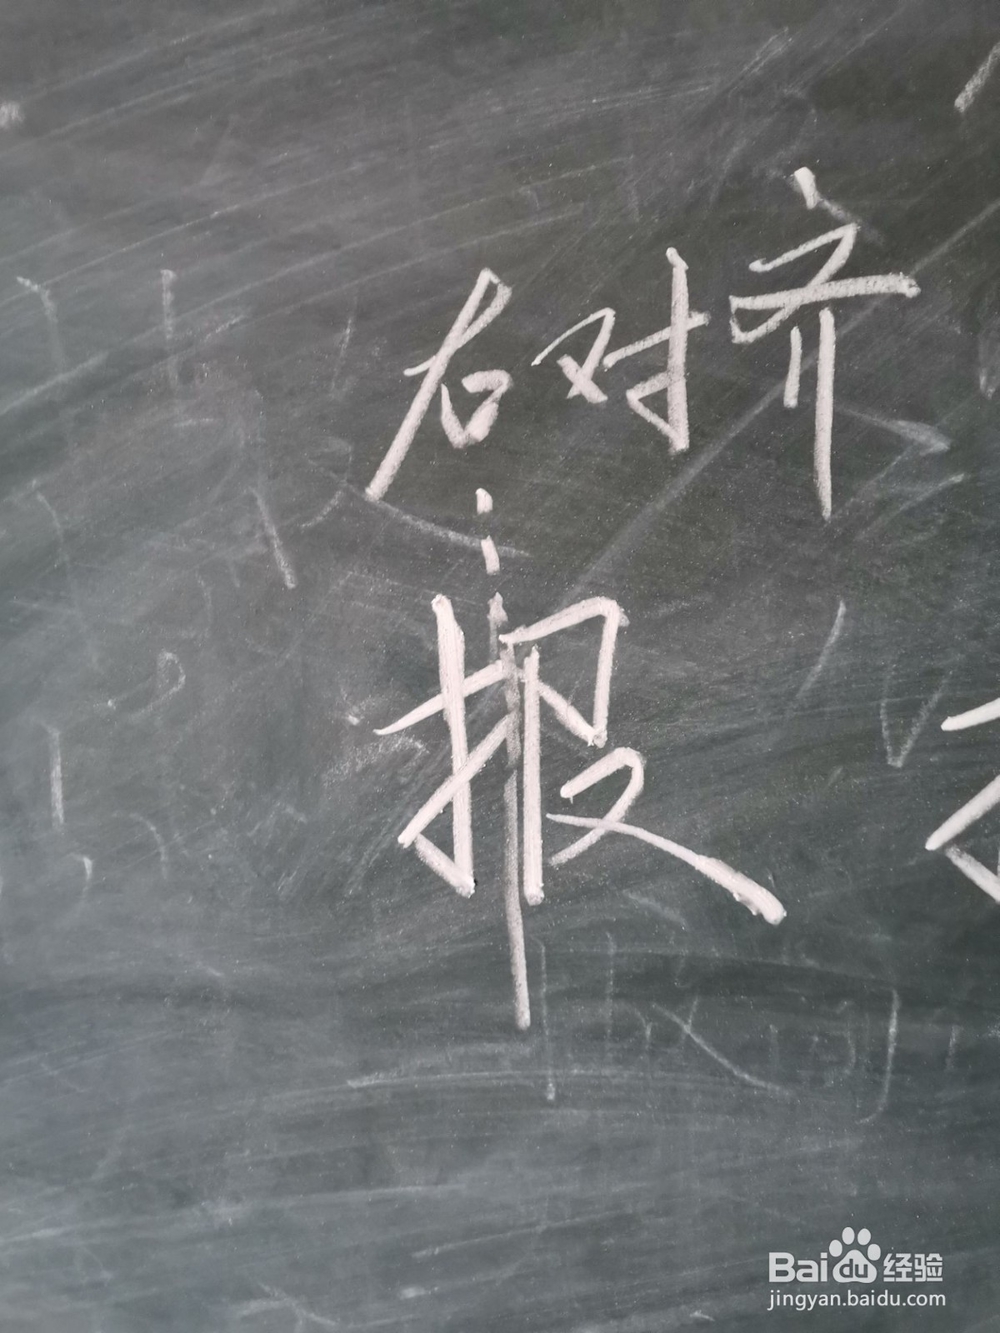 右对齐
报
Baidu经验
jingyan.baidu.com